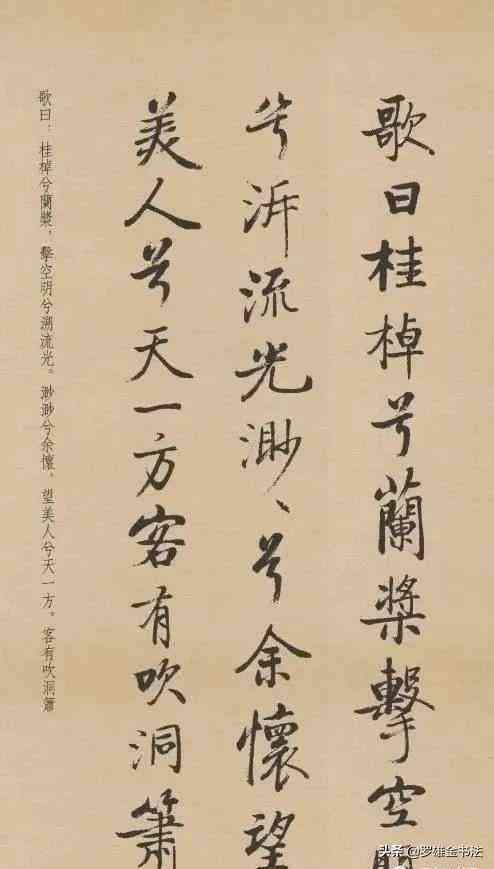 歌曰桂棹兮蘭槳擊空明
兮泝流光渺、兮余懷望
美人兮天一方客有吹洞簫
歌曰：桂棹兮蘭槳，擊空明兮溯流光。渺渺兮余懷，望美人兮天一方。客有吹洞簫
头条 @罗雄金书法